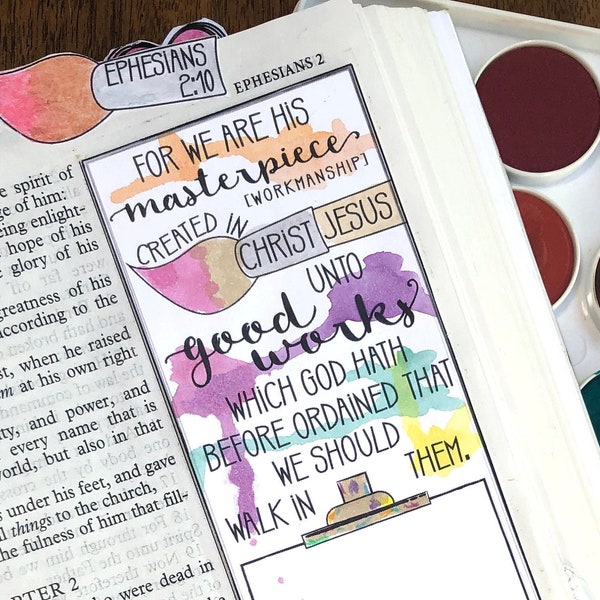 EPHESIANS
2:10
EPHESIANS 2
FOR WE ARE HIS
masterpiece
[WORKMANSHIP]
CREATED IN
CHRIST JESUS
UNTO
good
works
WHICH GOD HATH
BEFORE ORDAINED THAT
WE SHOULD
WALK IN THEM.
e spirit of
ge of him:
eing enlight-
hope of his
e glory of his
greatness of his
according to the
st, when he raised
m at his own right
ity, and power, and
every name that is
world, but also in that
s under his feet, and gave
ll things to the church,
the fulness of him that fill-
TER 2
were dead in